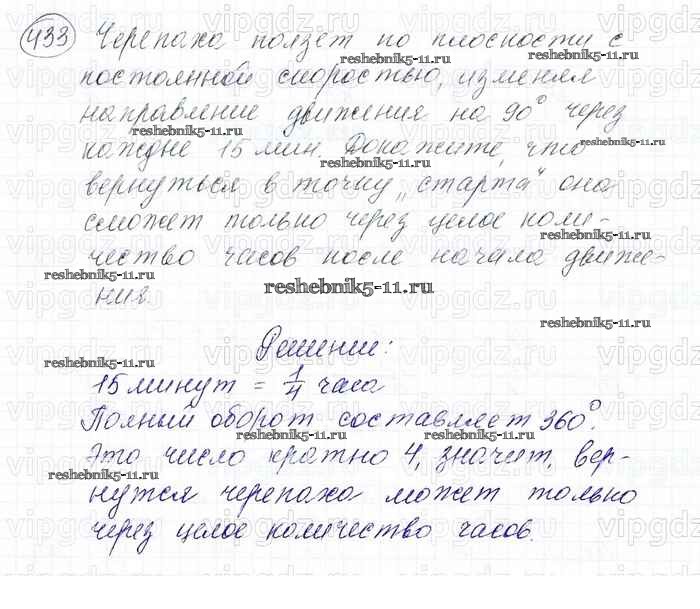 433 Черепаха ползет по плоскости с
постоянной скоростью, изменяя
направление движения на 90° через
каждые 15 мин. Докажите, что
вернуться в точку „старта“ она
сможет только через целое коли-
чество часов после начала движе-
ния.
Решение:
15 минут = 1/4 часа
Полный оборот составляет 360°.
Это число кратно 4, значит, вер-
нутся черепаха может только
через целое количество часов.
vipgdz.ru
reshebnik5-11.ru